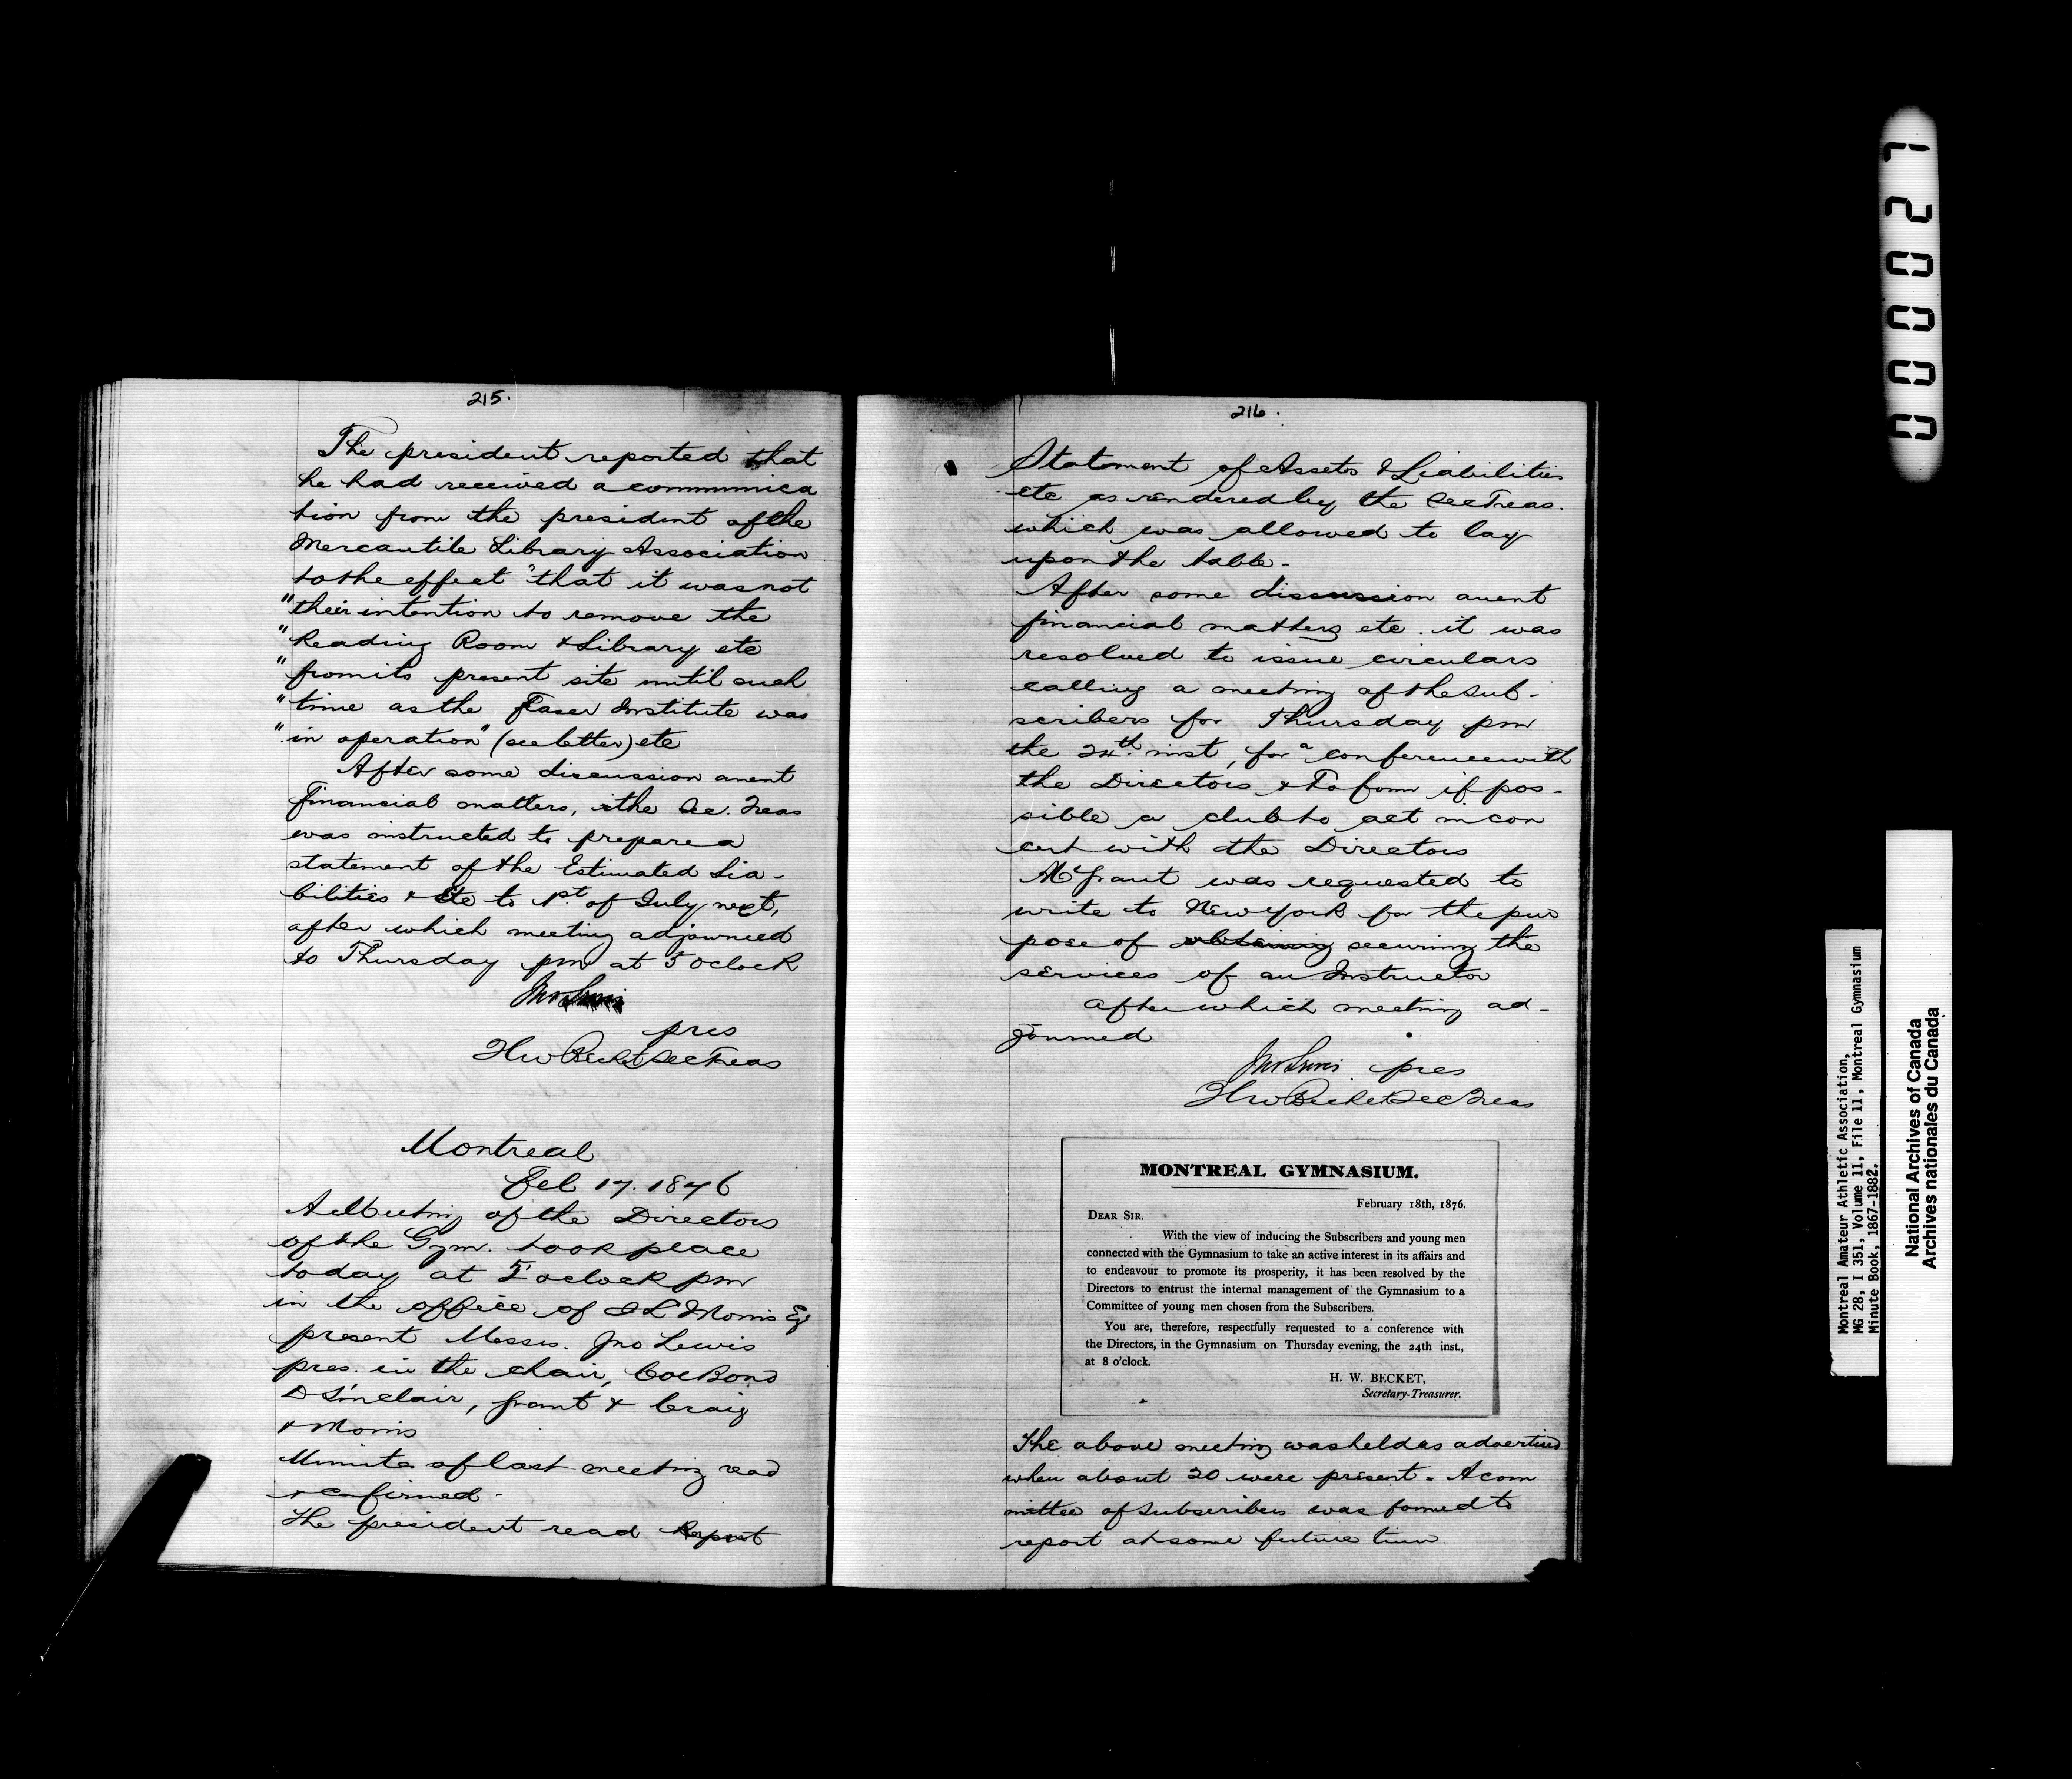 215.
The president reported that
he had received a communica
tion from the president of the
Mercantile Library Association
to the effect "that it was not
"their intention to remove the
"Reading Room & Library etc
"from its present site until such
"time as the Fraser Institute was
"in operation" (see letter) etc
After some discussion anent
Financial matters, the Sec. Treas
was instructed to prepare a
statement of the Estimated Lia-
bilities & Etc to 1st of July next,
after which meeting adjourned
to Thursday pm at 5 oclock
Jno Lewis
pres
H W Becket Sec Treas
Montreal
Feb 17. 1876
A Meeting of the Directors
of the Gym. took place
today at 5 oclock pm
in the office of L Morris Eq
present Messrs. Jno Lewis
pres. in the chair, Col Bond
D Sinclair, Grant & Craig
& Morris
Minutes of last meeting read
& confirmed -
The president read Report
216.
Statement of Assets & Liabilities
etc as rendered by the Sec Treas.
which was allowed to lay
upon the table -
After some discussion anent
financial matters etc. it was
resolved to issue circulars
calling a meeting of the sub-
scribers for Thursday pm
the 24th inst, for a conference with
the Directors & To form if pos-
sible a club to act in con
cert with the Directors
Mr Grant was requested to
write to New York for the pur
pose of obtaining securing the
services of an Instructor
after which meeting ad-
journed
Jno Lewis pres
H W Becket Sec Treas
MONTREAL GYMNASIUM.
February 18th, 1876.
DEAR SIR.
With the view of inducing the Subscribers and young men
connected with the Gymnasium to take an active interest in its affairs and
to endeavour to promote its prosperity, it has been resolved by the
Directors to entrust the internal management of the Gymnasium to a
Committee of young men chosen from the Subscribers.
You are, therefore, respectfully requested to a conference with
the Directors, in the Gymnasium on Thursday evening, the 24th inst.,
at 8 o'clock.
H. W. BECKET,
Secretary-Treasurer.
The above meeting was held as advertised
when about 20 were present - A com
mittee of subscribers was formed to
report at some future time
000021
Montreal Amateur Athletic Association,
MG 28, I 351, Volume 11, File 11, Montreal Gymnasium
Minute Book, 1867-1882.
National Archives of Canada
Archives nationales du Canada